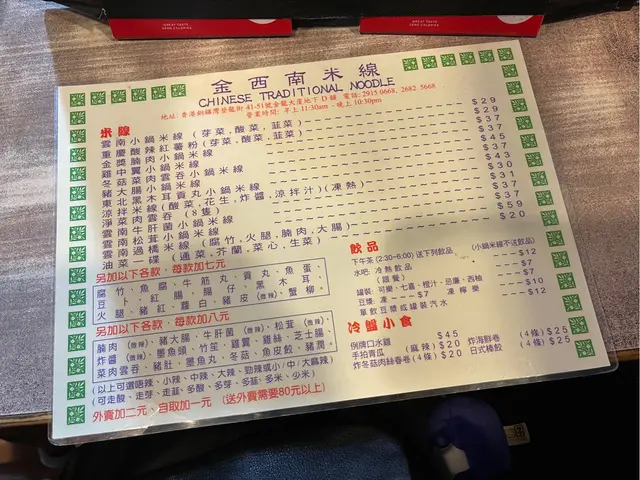 GREAT TASTE
ZERO CALORIES
GREAT TASTE
ZERO CALORIES
金西南米線
CHINESE TRADITIONAL NOODLE
地址: 香港銅鑼灣登龍街 41-51號金龍大廈地下 D 舖 電話: 2915 0668, 2682 5668
營業時間: 早上 11:30am - 晚上 10:30pm
米線
雲南小鍋米線 (芽菜,酸菜,韮菜) $29
重慶酸辣紅薯粉 (芽菜,酸菜,韮菜) $29
金獎腩肉小鍋米線 $45
雞中翼小鍋米線 $37
冬菇菜肉雲吞小鍋米線 $43
豬大腸小鍋米線 $45
東北黑木耳貢丸小鍋米線 $30
涼拌米線 (酸菜,花生,炸醬,涼拌汁)(凍熱) $31
淨菜肉雲吞 (8隻) $37
雲南牛肝菌小鍋米線 $37
雲南松茸小鍋米線 $59
雲南過橋米線 (腐竹,火腿,腩肉,大腸)
油菜一碟 (通菜,芥蘭,菜心,生菜) $20
另加以下各款,每款加七元
腐竹、魚腐、牛筋丸、貢丸、魚蛋、
豆卜、紅腸、腸仔、黑木耳、
火腿、豬紅、蘿白、豬皮(微辣)、蟹柳。
另加以下各款,每款加八元
腩肉(微辣)、豬大腸、牛肝菌(微辣)、松茸(微辣)、
炸醬(微辣)、墨魚頭、竹笙、雞翼、雞絲、芝士腸、
菜肉雲吞、豬肚、墨魚丸、冬菇、魚皮餃、豬潤。
(以上可選唔辣、小辣、中辣、大辣、勁辣或小/中/大麻辣)
(可走酸、走芽、走韮、多酸、多芽、多韮、多米、少米)
外賣加二元、自取加一元 (送外賣需要80元以上)
飲品
下午茶 (2:30-6:00) 送下列飲品 (小鍋米線不送飲品)
水吧: 冷熱飲品 $12
(跟餐) $7
罐裝: 可樂、七喜、橙汁、忌廉、西柚 $10
豆漿: 凍 $7 凍檸樂 $12
單飲豆漿或罐裝汽水 $10
冷盤小食
例牌口水雞 $45
手拍青瓜 (麻辣) $20 炸海鮮卷 (4條) $25
炸冬菇肉絲春卷 (4條) $20 日式棒餃 (4條) $25